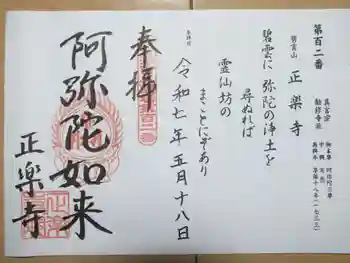 第百二番
碧雲山 正楽寺
真言宗
御本尊 阿弥陀三尊
碧雲に 弥陀の浄土を
尋ぬれば
霊仙坊の
まことにぞあり
奉拝
令和七年五月十八日
阿弥陀如来
正楽寺